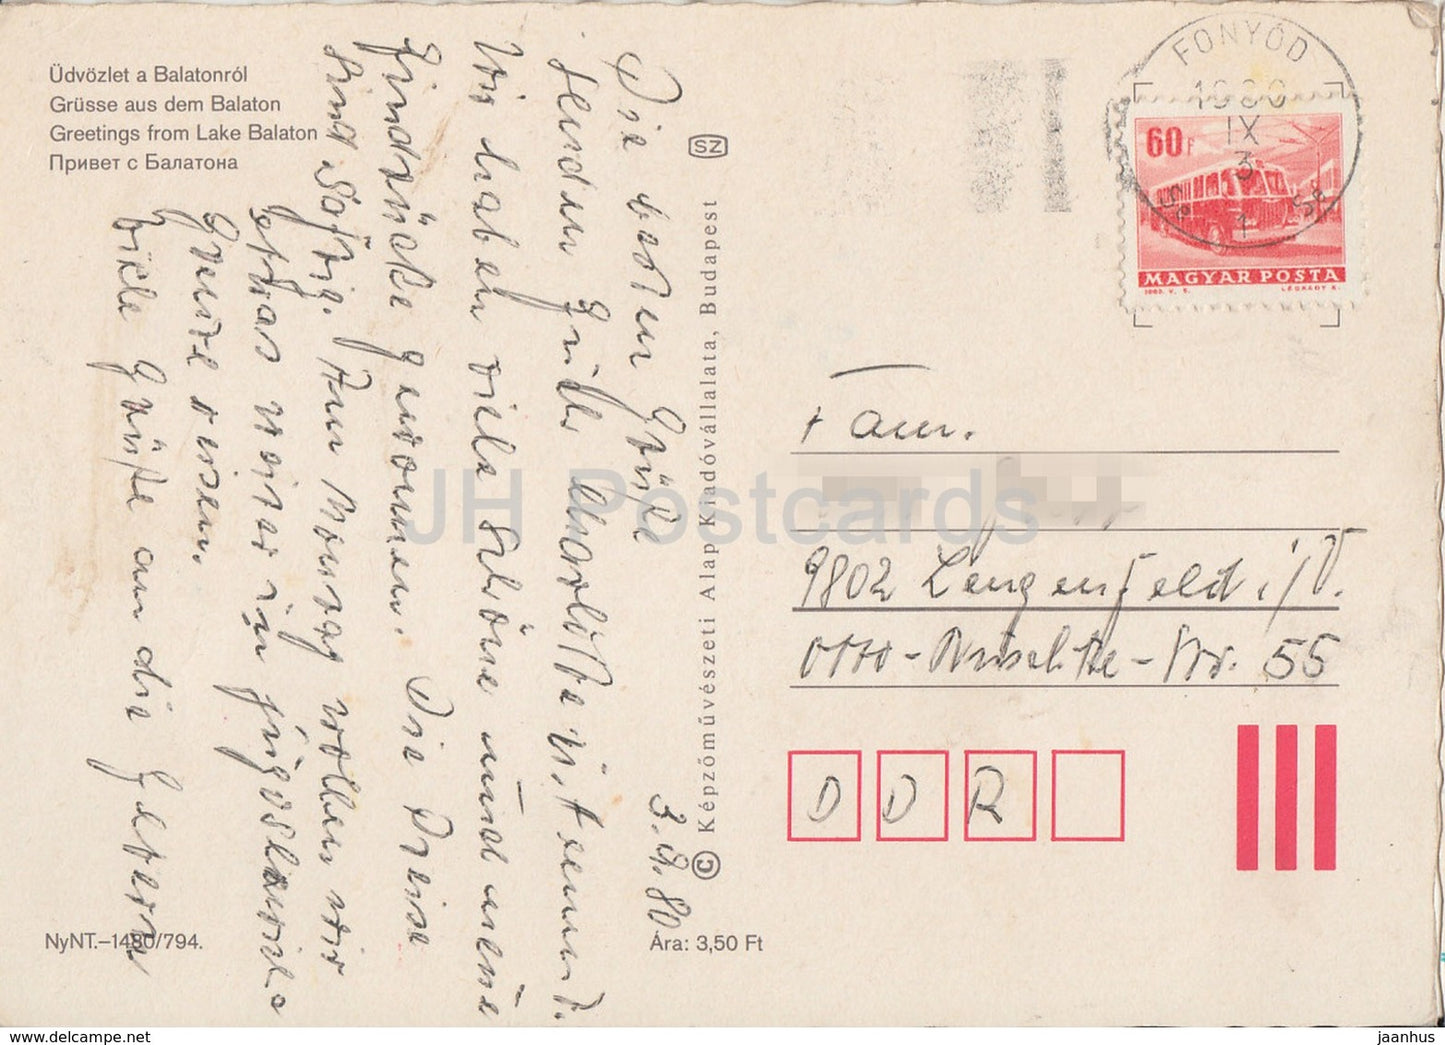 Üdvözlet a Balatonról
Grüsse aus dem Balaton
Greetings from Lake Balaton
Привет с Балатона
Die besten Grüße
senden
Wir haben viele schöne und neue
Eindrücke gewonnen. Die Preise
sind saftig. Am Montag wollen wir
etwas weiter in jugoslawische
reisen.
Viele Grüße an die Eltern
3.9.80
NyNT.–1480/794.
Ára: 3,50 Ft
SZ
© Képzőművészeti Alap Kiadóvállalata, Budapest
FONYÓD
1980
IX
3
1
60 f
MAGYAR POSTA
1963. V. 5.
LÉGRÁDY K.
Fam.
9802 Lengenfeld i/V.
Otto-Nuschke-Str. 55
DDR
JH Postcards
jaanhus